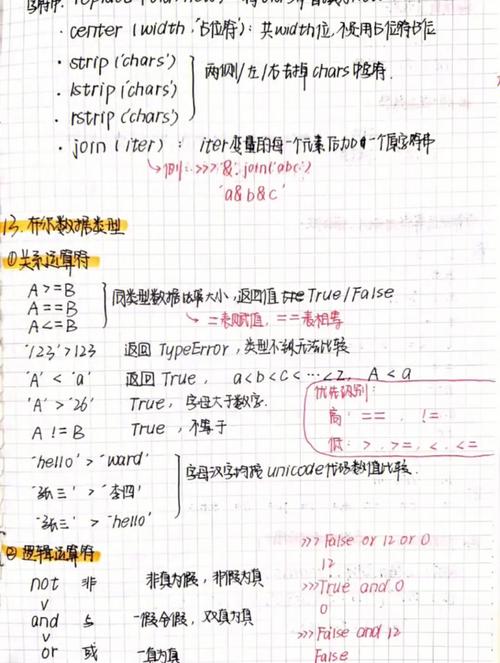 · center(width,'占位符'): 共width位,不足用占位符占位
· strip('chars')
· lstrip('chars')
· rstrip('chars')
两侧/左/右去掉chars中字符.
· join(iter): iter变量的每一个元素后加一个原字符串
例: >>>'&'.join('abc')
'a&b&c'
13. 布尔数据类型
①关系运算符
A >= B
A == B
A <= B
同类型数据比较大小,返回值 True/False
=表赋值, ==表相等
'123'>123 返回 TypeError,类型不同无法比较
'A' < 'a' 返回 True, a<b<c<…<z, A<a
'A' > '26' True, 字母大于数字.
A != B True, 不等于
优先级别:
高: ==, !=
低: >, >=, <, <=
"hello" > "ward"
"张三" > "李四"
"张三" > "hello"
字母汉字均按unicode代码数值比较.
②逻辑运算符
not 非 非真为假,非假为真
and 与 一假全假,双真为真
or 或 一真为真
>>> False or 12 or 0
12
>>> True and 0
0
>>> False and 12
False